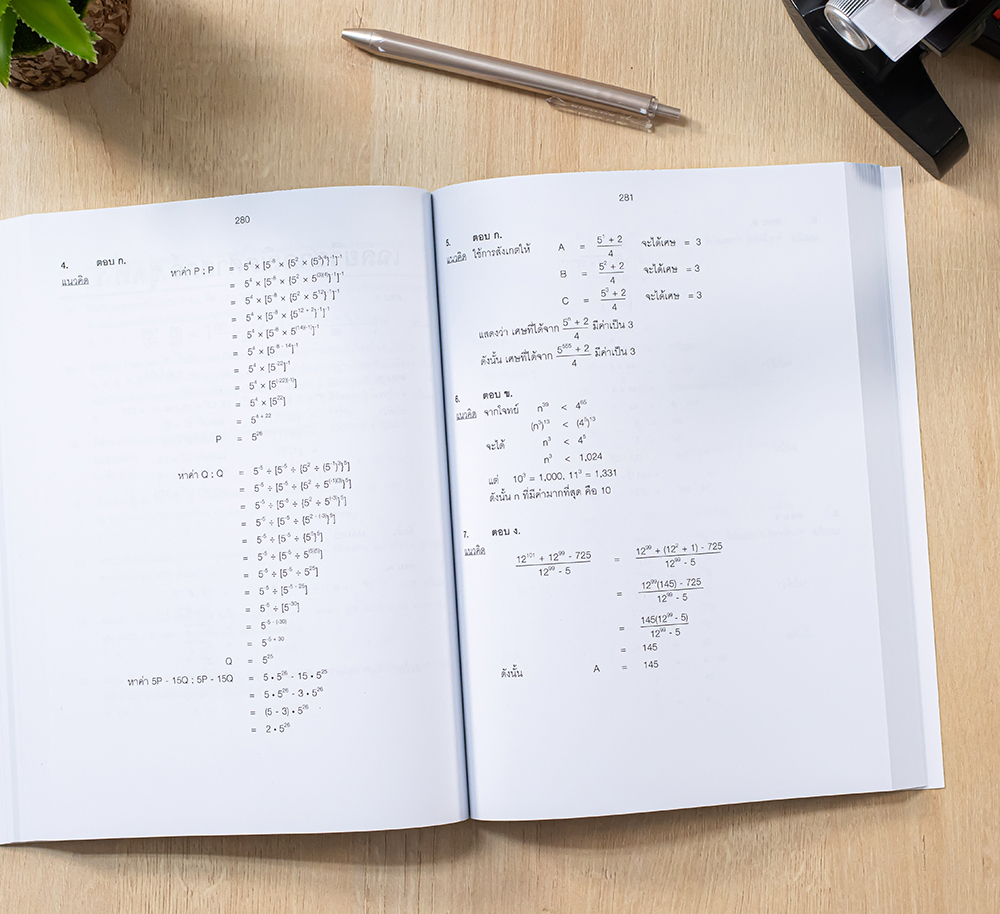 280
4. ตอบ ก.
แนวคิด หาค่า P ; P = 5⁴ × [5⁻⁸ × {5² × (5³)⁴}⁻¹]⁻¹
= 5⁴ × [5⁻⁸ × {5² × 5⁽³⁾⁽⁴⁾}⁻¹]⁻¹
= 5⁴ × [5⁻⁸ × {5² × 5¹²}⁻¹]⁻¹
= 5⁴ × [5⁻⁸ × {5¹² ⁺ ²}⁻¹]⁻¹
= 5⁴ × [5⁻⁸ × 5⁽¹⁴⁾⁽⁻¹⁾]⁻¹
= 5⁴ × [5⁻⁸ ⁻ ¹⁴]⁻¹
= 5⁴ × [5⁻²²]⁻¹
= 5⁴ × [5⁽⁻²²⁾⁽⁻¹⁾]
= 5⁴ × [5²²]
= 5⁴ ⁺ ²²
P = 5²⁶
หาค่า Q ; Q = 5⁻⁵ ÷ [5⁻⁵ ÷ {5² ÷ (5⁻¹)³}⁵]
= 5⁻⁵ ÷ [5⁻⁵ ÷ {5² ÷ 5⁽⁻¹⁾⁽³⁾}⁵]
= 5⁻⁵ ÷ [5⁻⁵ ÷ {5² ÷ 5⁽⁻³⁾}⁵]
= 5⁻⁵ ÷ [5⁻⁵ ÷ {5² ⁻ ⁽⁻³⁾}⁵]
= 5⁻⁵ ÷ [5⁻⁵ ÷ {5⁵}⁵]
= 5⁻⁵ ÷ [5⁻⁵ ÷ 5⁽⁵⁾⁽⁵⁾]
= 5⁻⁵ ÷ [5⁻⁵ ÷ 5²⁵]
= 5⁻⁵ ÷ [5⁻⁵ ⁻ ²⁵]
= 5⁻⁵ ÷ [5⁻³⁰]
= 5⁻⁵ ⁻ ⁽⁻³⁰⁾
= 5⁻⁵ ⁺ ³⁰
Q = 5²⁵
หาค่า 5P - 15Q ; 5P - 15Q = 5 • 5²⁶ - 15 • 5²⁵
= 5 • 5²⁶ - 3 • 5²⁶
= (5 - 3) • 5²⁶
= 2 • 5²⁶
281
5. ตอบ ก.
แนวคิด ใช้การสังเกตให้ A = (5¹ + 2)/4 จะได้เศษ = 3
B = (5² + 2)/4 จะได้เศษ = 3
C = (5³ + 2)/4 จะได้เศษ = 3
แสดงว่า เศษที่ได้จาก (5ⁿ + 2)/4 มีค่าเป็น 3
ดังนั้น เศษที่ได้จาก (5⁵⁵⁵ + 2)/4 มีค่าเป็น 3
6. ตอบ ข.
แนวคิด จากโจทย์ n³⁹ < 4⁶⁵
(n³)¹³ < (4⁵)¹³
จะได้ n³ < 4⁵
n³ < 1,024
แต่ 10³ = 1,000, 11³ = 1,331
ดังนั้น n ที่มีค่ามากที่สุด คือ 10
7. ตอบ ง.
แนวคิด (12¹⁰¹ + 12⁹⁹ - 725)/(12⁹⁹ - 5) = (12⁹⁹ + (12² + 1) - 725)/(12⁹⁹ - 5)
= (12⁹⁹(145) - 725)/(12⁹⁹ - 5)
= (145(12⁹⁹ - 5))/(12⁹⁹ - 5)
= 145
ดังนั้น A = 145